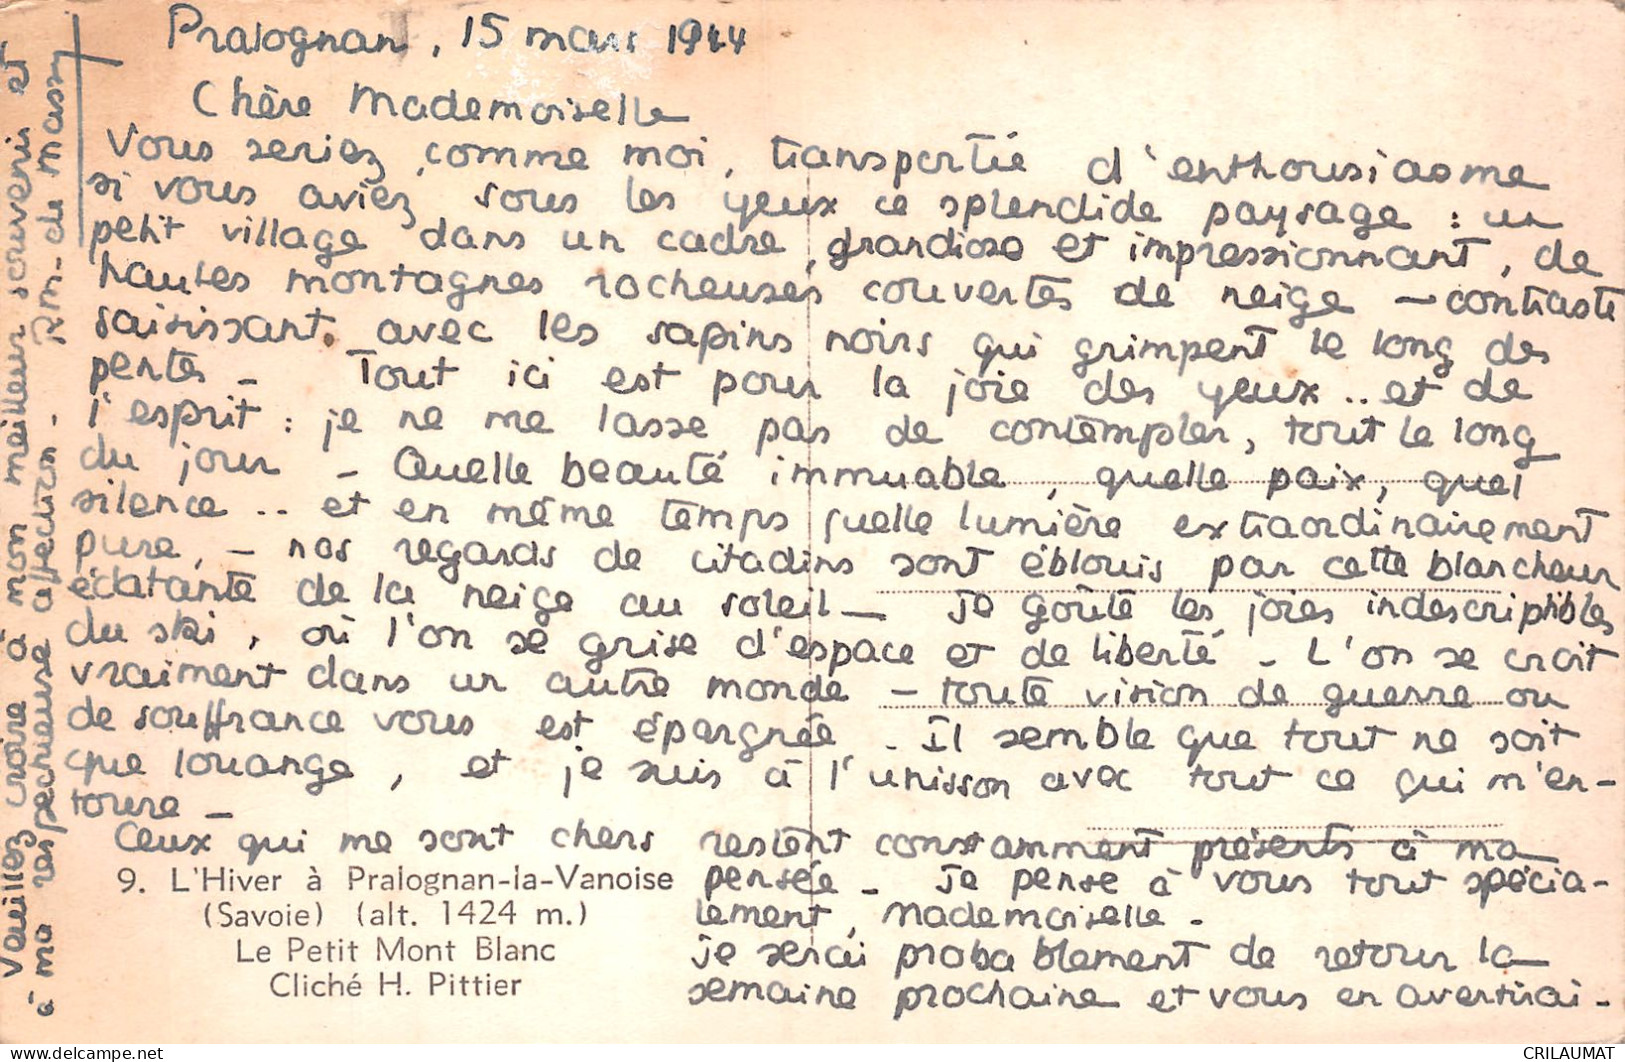 Pralognan, 15 mars 1944
Chère Mademoiselle
Vous seriez, comme moi, transportée d'enthousiasme
si vous aviez sous les yeux ce splendide paysage : un
petit village dans un cadre grandiose et impressionnant, de
hautes montagnes rocheuses couvertes de neige — contraste
saisissant avec les sapins noirs qui grimpent le long des
pentes — Tout ici est pour la joie des yeux .. et de
l'esprit : je ne me lasse pas de contempler, tout le long
du jour — Quelle beauté immuable, quelle paix, quel
silence .. et en même temps quelle lumière extraordinairement
pure, — nos regards de citadins sont éblouis par cette blancheur
éclatante de la neige au soleil — Je goûte les joies indescriptibles
du ski, où l'on se grise d'espace et de liberté — L'on se croit
vraiment dans un autre monde — toute vision de guerre ou
de souffrance vous est épargnée — Il semble que tout ne soit
que louange, et je suis à l'unisson avec tout ce qui m'en-
toure —
Ceux qui me sont chers restent constamment présents à ma
pensée — Je pense à vous tout spécia-
lement, Mademoiselle —
Je serai probablement de retour la
semaine prochaine et vous en avertirai —
9. L'Hiver à Pralognan-la-Vanoise
(Savoie) (alt. 1424 m.)
Le Petit Mont Blanc
Cliché H. Pittier
Veuillez croire à mon meilleur souvenir et
à ma respectueuse affection — RM. de Massy
CRILAUMAT